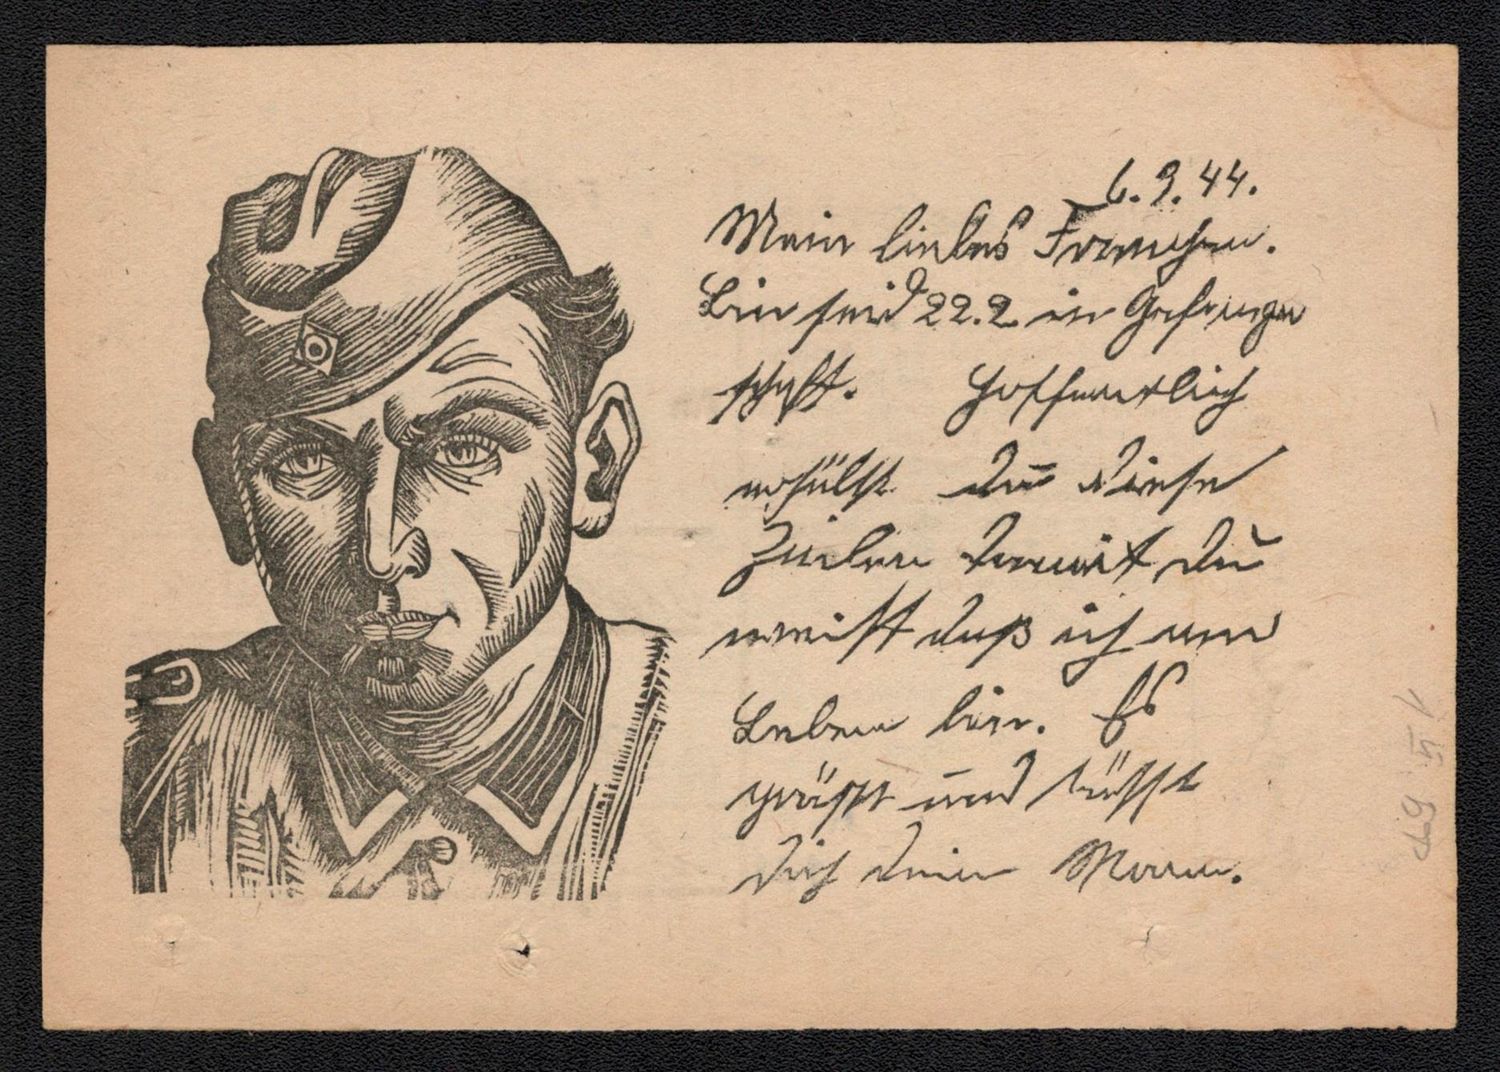 6.3.44.
Mein liebes Frauchen.
Bin seid 22.2 in Gefangen
schaft. Hoffentlich
erhälst Du diese
Zeilen damit Du
weist daß ich am
Leben bin. Es
grüßt und küsst
dich dein Mann.